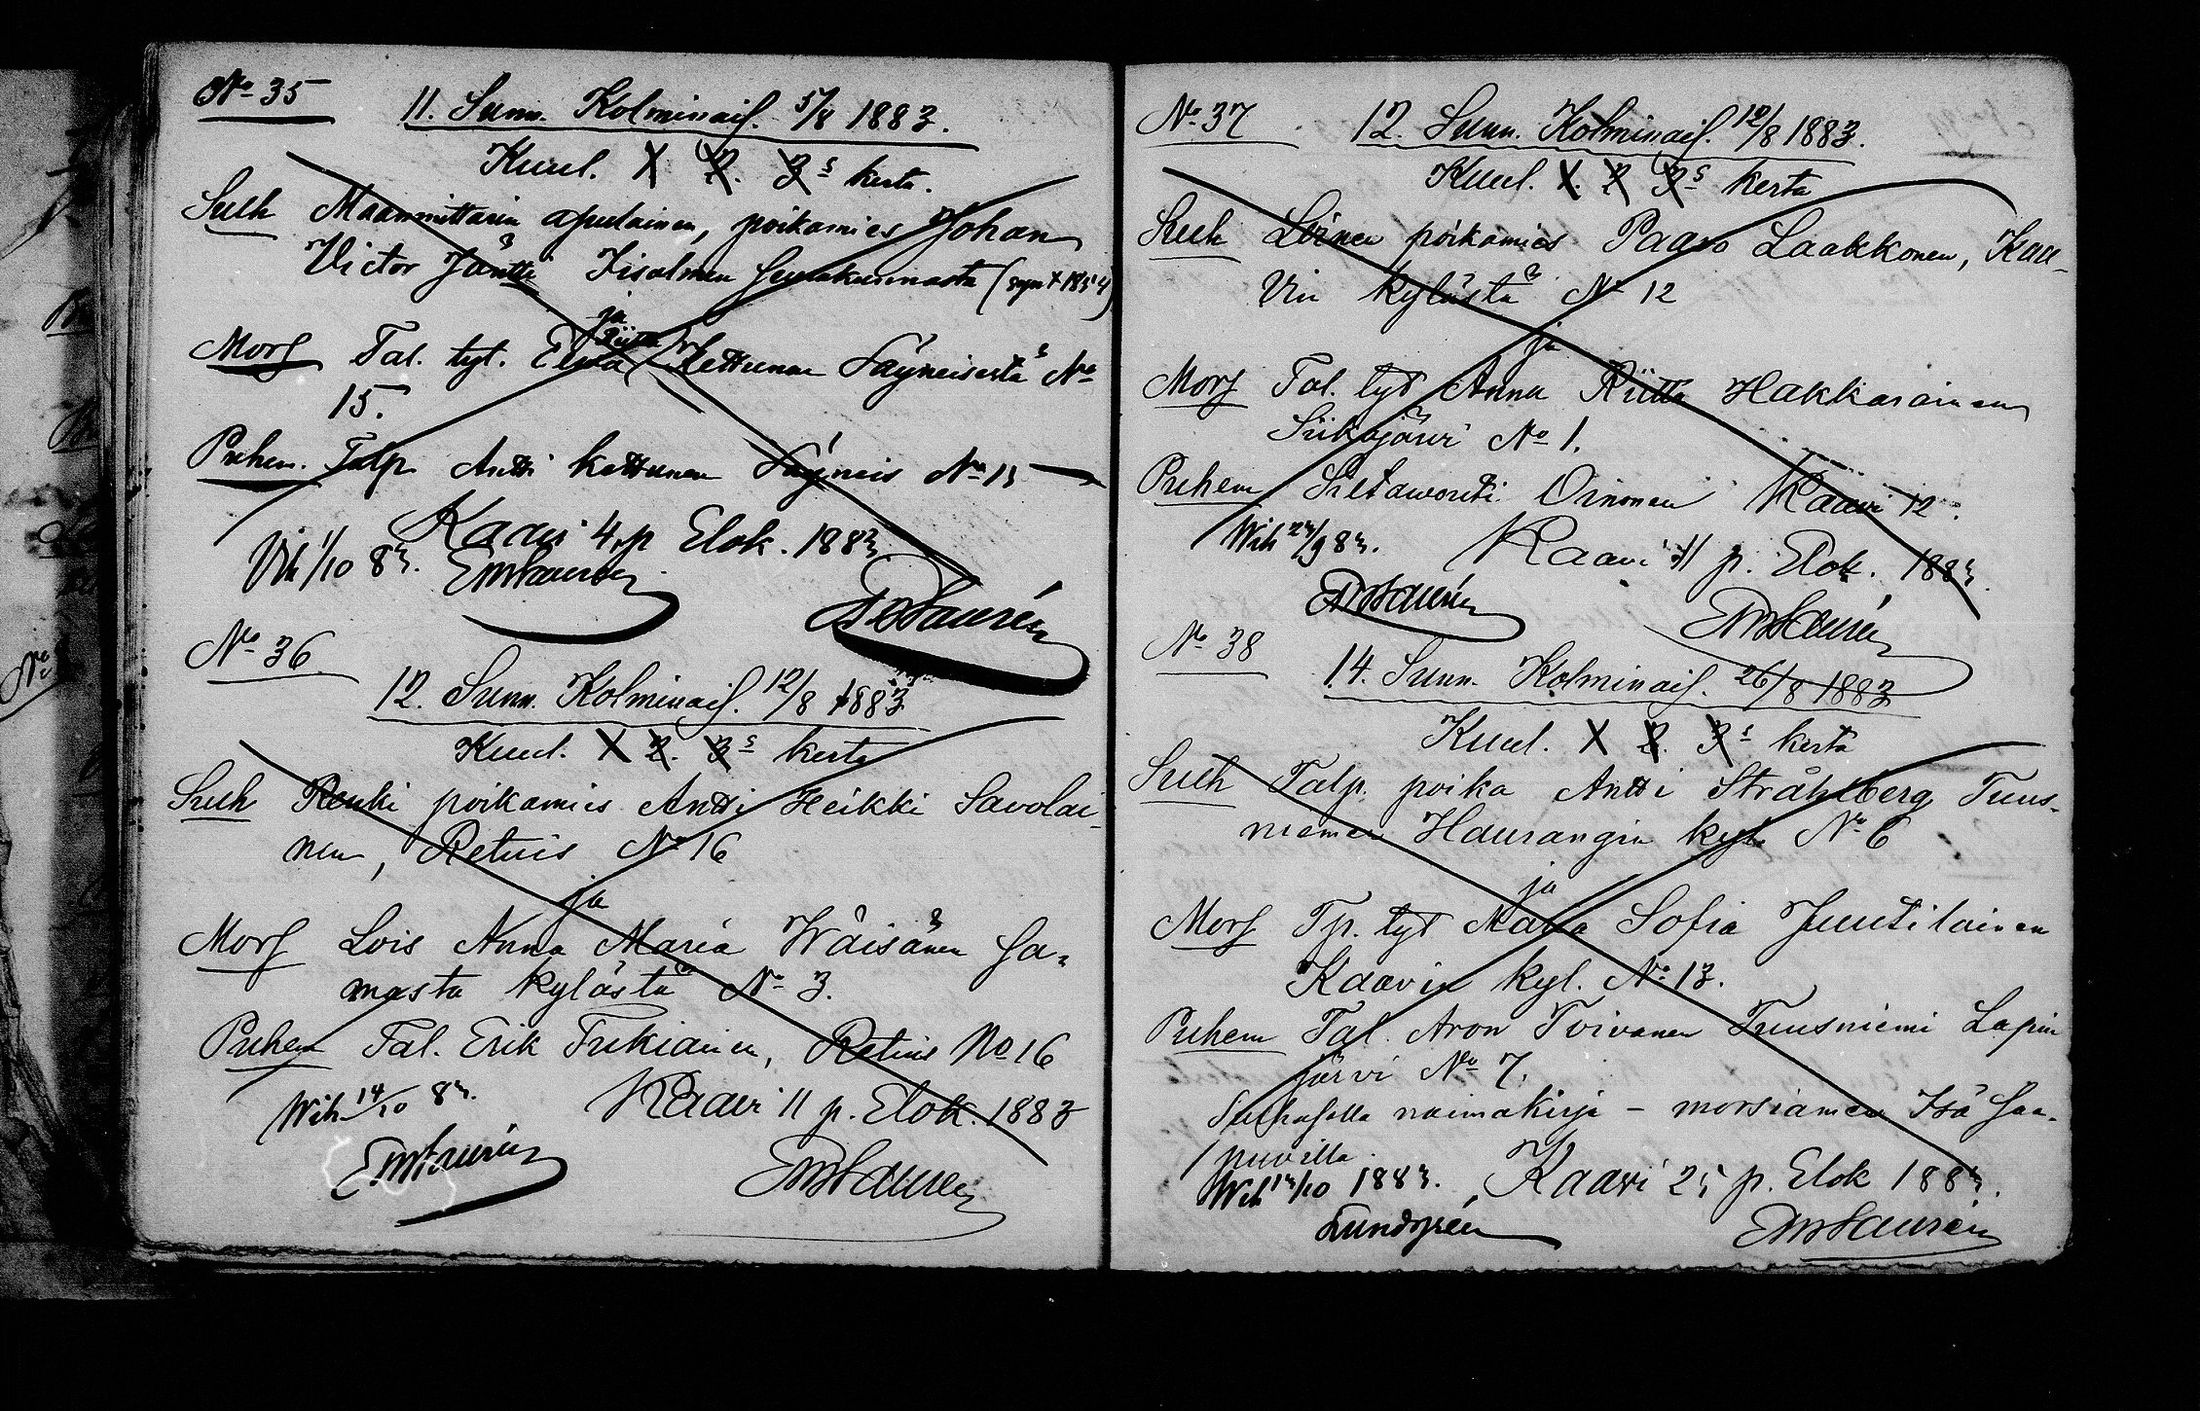 No 35
11. Sunn. Kolminais. 5/8 1883.
Kuul. 1. 2. 3s kerta.
Sulh Maanmittarin apulainen, poikamies Johan
Victor Jäntti Iisalmen seurakunnasta (synt 1854)
ja
Riitta
Mors Tal. tyt. Elsa Kettunen Säyneisestä No
15.
Puhem. Talp Antti Kettunen Säyneis No 15
Kaavi 4 p Elok. 1883
Vih 1/10 83.
No 36
12. Sunn. Kolminais. 12/8 1883
Kuul. 1 2. 3s kerta
Sulh Renki poikamies Antti Heikki Savolai-
nen, Retuis No 16
ja
Mors Lois Anna Maria Wäisänen Sa-
masta kylästä No 3.
Puhem Tal. Erik Tukiainen, Retuis No 16
Wih 14/10 83.
Kaavi 11 p. Elok. 1883
No 37
12. Sunn. Kolminais. 12/8 1883.
Kuul. 1. 2 3s kerta
Sulh Loinen poikamies Paavo Laakkonen, Kaa-
vin kylästä No 12
ja
Mors Tal. tyt Anna Riitta Hakkarainen
Siikajärvi No 1.
Puhem Siltavouti Oinonen Kaavi 12.
Wih 23/9 83.
Kaavi 11 p. Elok. 1883
No 38
14. Sunn. Kolminais. 26/8 1883
Kuul. 1 2. 3s kerta
Sulh Talp. poika Antti Stråhlberg Tuus-
niemen Haurangin kylä No 6
ja
Mors Tp. tyt Maria Sofia Juutilainen
Kaavin kyl. No 13.
Puhem Tal. Aron Toivanen Tuusniemi Lapin
järvi No 7.
Sulhasella naimakirja – morsiamen Isä saa-
puvilla.
Wih 13/10 1883.
Kaavi 25 p. Elok 1883.
Lundgrén